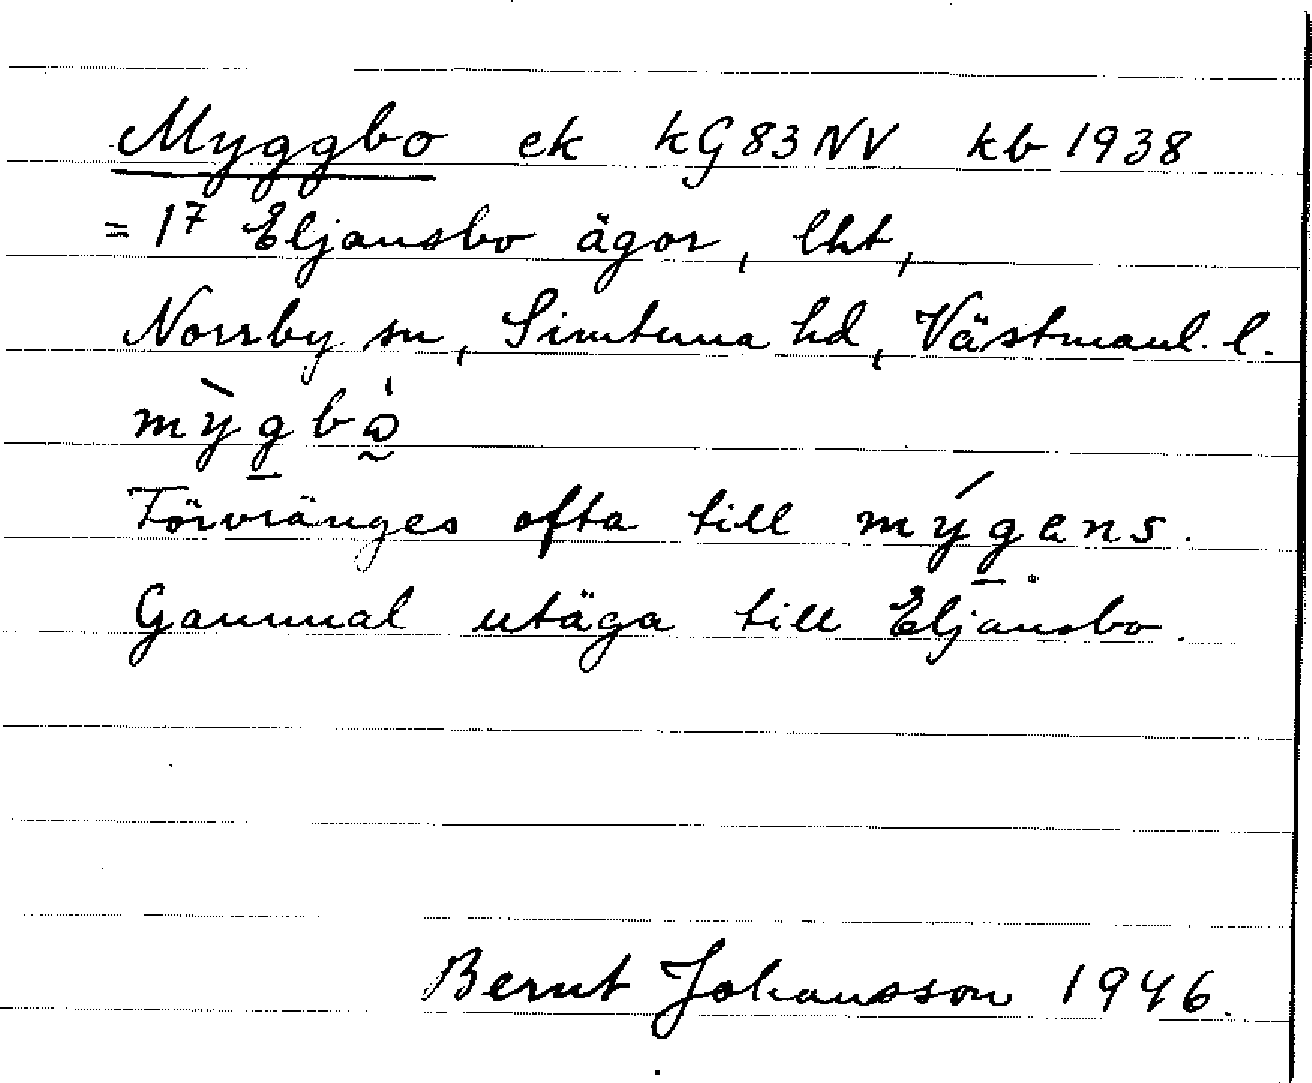 Myggbo ek kG83NV kb 1938
= 1⁷ Eljansbo ägor, lht,
Norrby sn, Simtuna hd, Västmanl. l.
mỳgbå̀
Förvränges ofta till mýgens.
Gammal utäga till Eljansbo.
Bernt Johansson 1946.